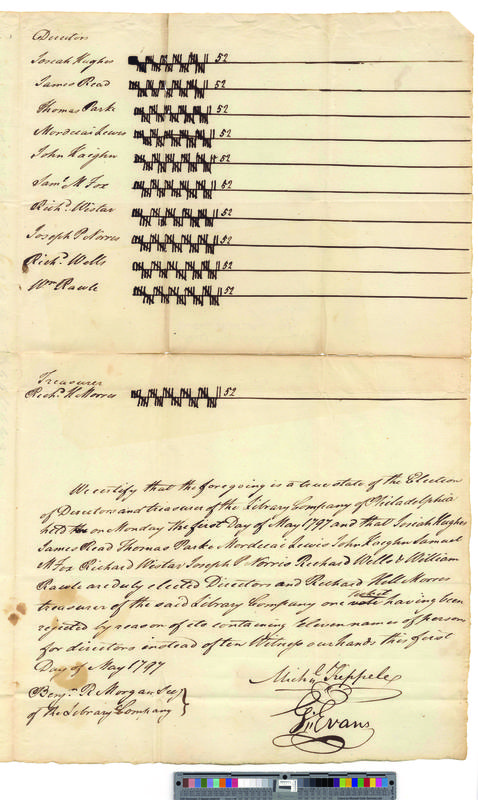 Directors
Josiah Hughes 52
James Read 52
Thomas Parke 52
Mordecai Lewis 52
John Kaighn 52
Saml. M Fox 52
Richd. Wistar 52
Joseph P Norris 52
Richd. Wells 52
Wm Rawle 52
Treasurer
Richd. H Morris 52
We certify that the foregoing is a true state of the Election
of Directors and treasurer of the Library Company of Philadelphia
held on Monday the first Day of May 1797 and that Josiah Hughes
James Read Thomas Parke Mordecai Lewis John Kaighn Samuel
M Fox Richard Wistar Joseph P Norris Richard Wells & William
Rawle are duly elected Directors and Richard Hill Morris
treasurer of the said Library Company one ticket having been
rejected by reason of its containing Eleven names of persons
for directors instead of ten Witness our hands this first
Day of May 1797
Benjn. R Morgan Secy
of the Library Company
Michl. Keppele
G Evans